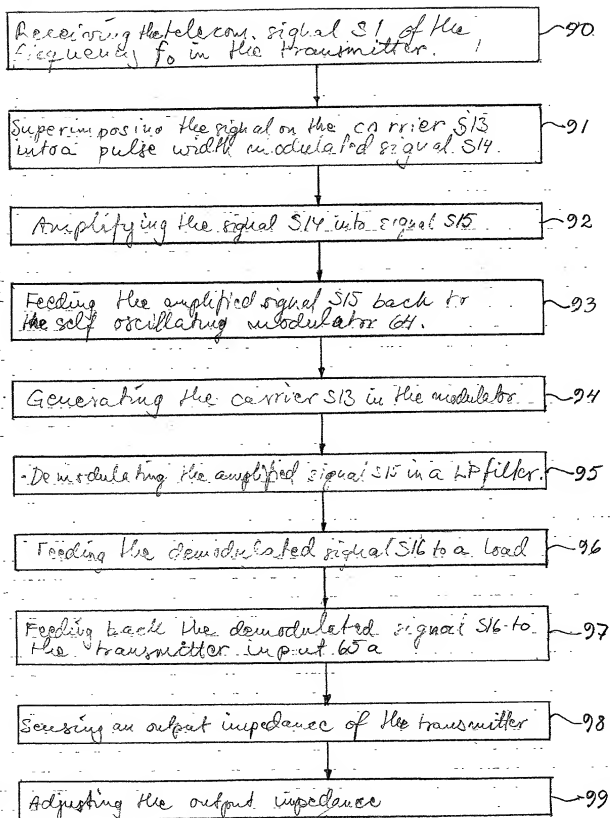 Receiving the telecom. signal S1 of the 90
frequency f0 in the transmitter.
Superimposing the signal on the carrier S13 91
into a pulse width modulated signal S14.
Amplifying the signal S14 into signal S15 92
Feeding the amplified signal S15 back to 93
the self oscillating modulator 64.
Generating the carrier S13 in the modulator 94
Demodulating the amplified signal S15 in a LP filter. 95
Feeding the demodulated signal S16 to a load 96
Feeding back the demodulated signal S16 to 97
the transmitter input 65a
Sensing an output impedance of the transmitter 98
Adjusting the output impedance 99